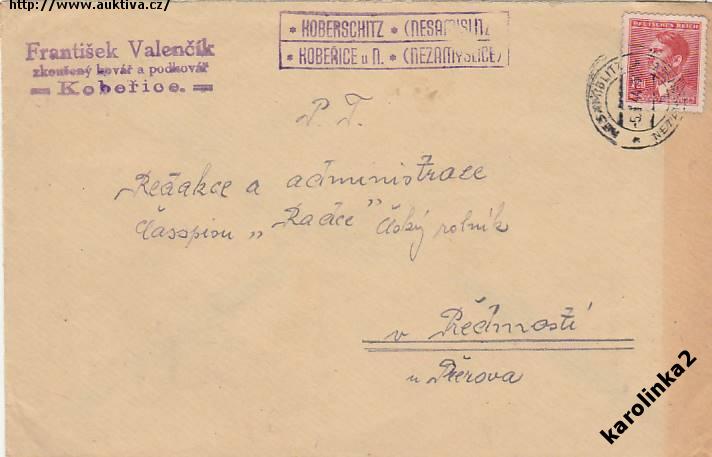 http://www.auktiva.cz/
František Valenčík
zkoušený kovář a podkovář
Kobeřice.
* KOBERSCHITZ * (NESAMISLITZ
* KOBEŘICE u N. * (NEZAMYSLICE)
DEUTSCHES REICH
P. T.
Redakce a administrace
Časspisu „Rádce" Český rolník
v Předmostí
u Přerova
karolinka2